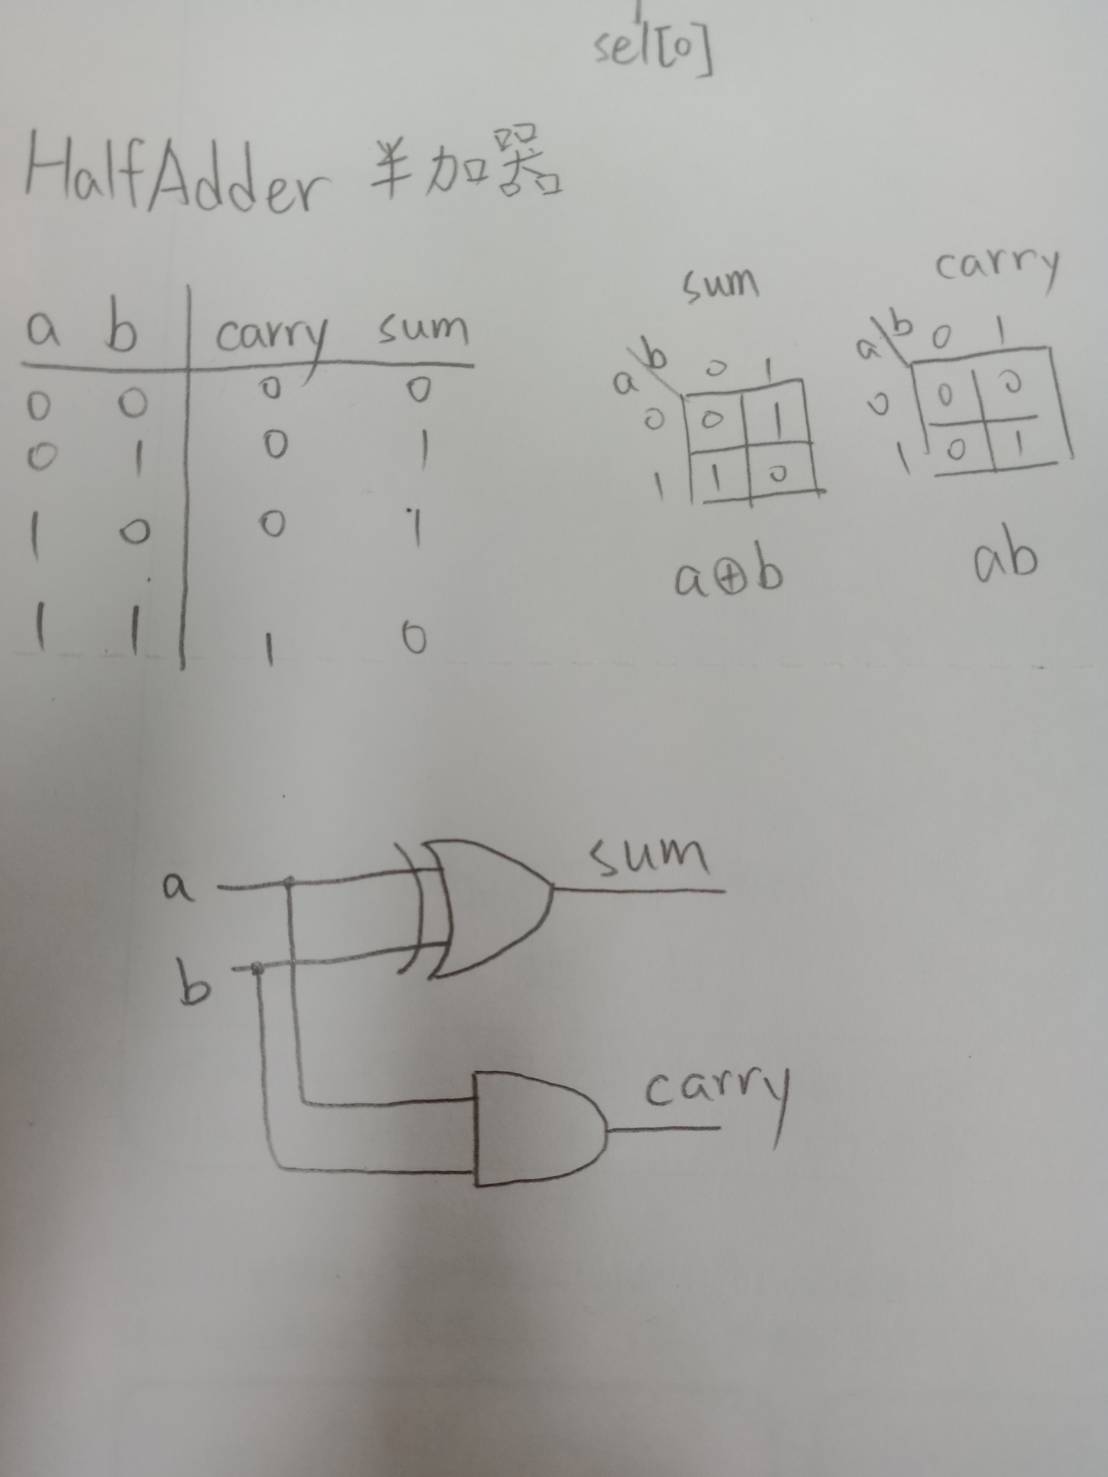 sel[0]
HalfAdder 半加器
a b carry sum
0 0 0 0
0 1 0 1
1 0 0 1
1 1 1 0
sum
b
a 0 1
0 0 1
1 1 0
a⊕b
carry
b
a 0 1
0 0 0
1 0 1
ab
a
b
sum
carry